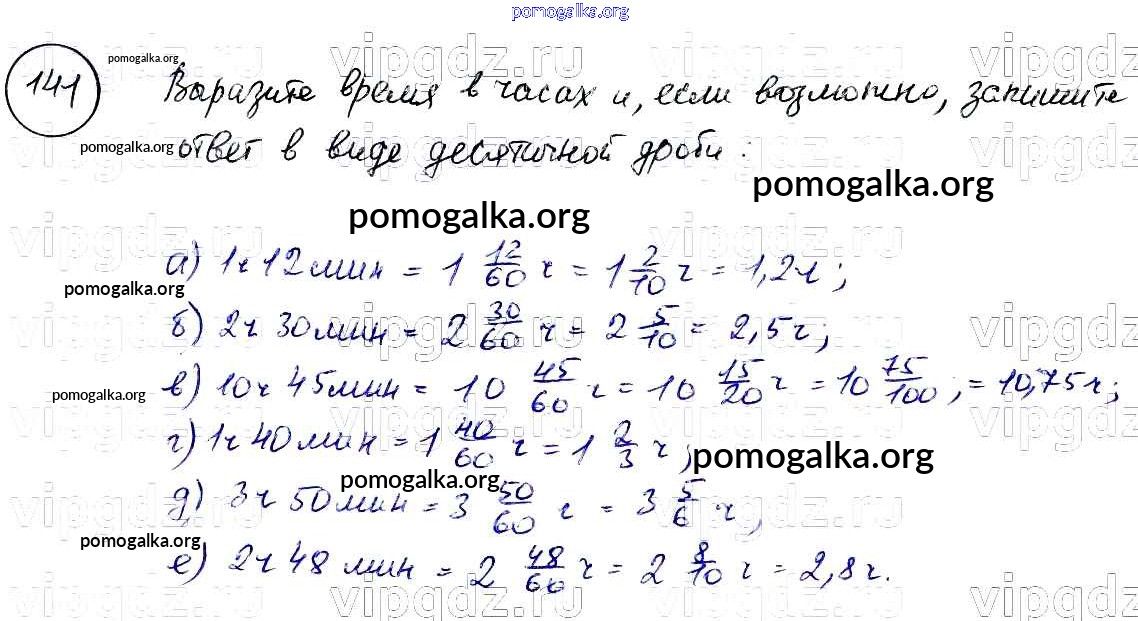 pomogalka.org
vipgdz.ru vipgdz.ru vipgdz.ru
141
pomogalka.org
Выразите время в часах и, если возможно, запишите
pomogalka.org
ответ в виде десятичной дроби:
vipgdz.ru vipgdz.ru vipgdz.ru
pomogalka.org
pomogalka.org
vipgdz.ru vipgdz.ru vipgdz.ru
а) 1ч 12 мин = 1 12/60 ч = 1 2/10 ч = 1,2ч;
pomogalka.org
б) 2ч 30 мин = 2 30/60 ч = 2 5/10 = 2,5ч;
vipgdz.ru vipgdz.ru vipgdz.ru
в) 10ч 45 мин = 10 45/60 ч = 10 15/20 ч = 10 75/100; = 10,75ч;
pomogalka.org
г) 1ч 40 мин = 1 40/60 ч = 1 2/3 ч;
vipgdz.ru vipgdz.ru vipgdz.ru
pomogalka.org
pomogalka.org
д) 3ч 50 мин = 3 50/60 ч = 3 5/6 ч;
vipgdz.ru vipgdz.ru vipgdz.ru
pomogalka.org
е) 2ч 48 мин = 2 48/60 ч = 2 8/10 ч = 2,8ч.
vipgdz.ru vipgdz.ru vipgdz.ru